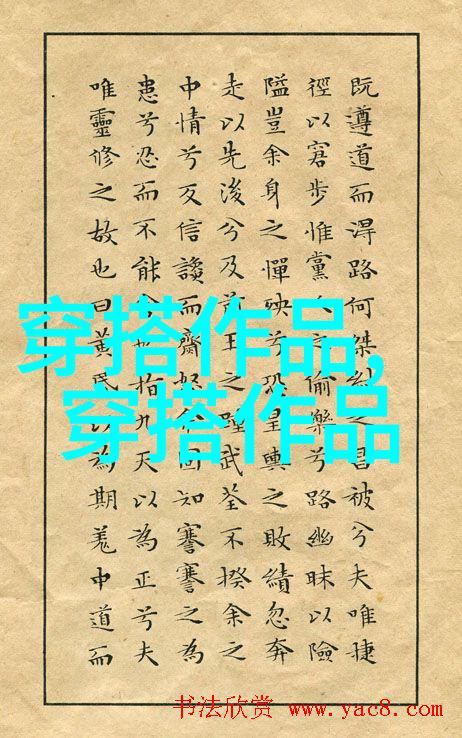 既遵道而得路何桀紂之昌被兮夫唯捷
徑以窘步惟黨人之偷樂兮路幽昧以險
隘豈余身之憚殃兮恐皇輿之敗績忽奔
走以先後兮及前王之踵武荃不揆余之
中情兮反信讒而齌怒余固知謇謇之為
患兮忍而不能舍也指九天以為正兮夫
唯靈修之故也曰黃昬以為期羌中道而
穿搭作品,
穿搭作品
书法欣赏 www.yac8.com